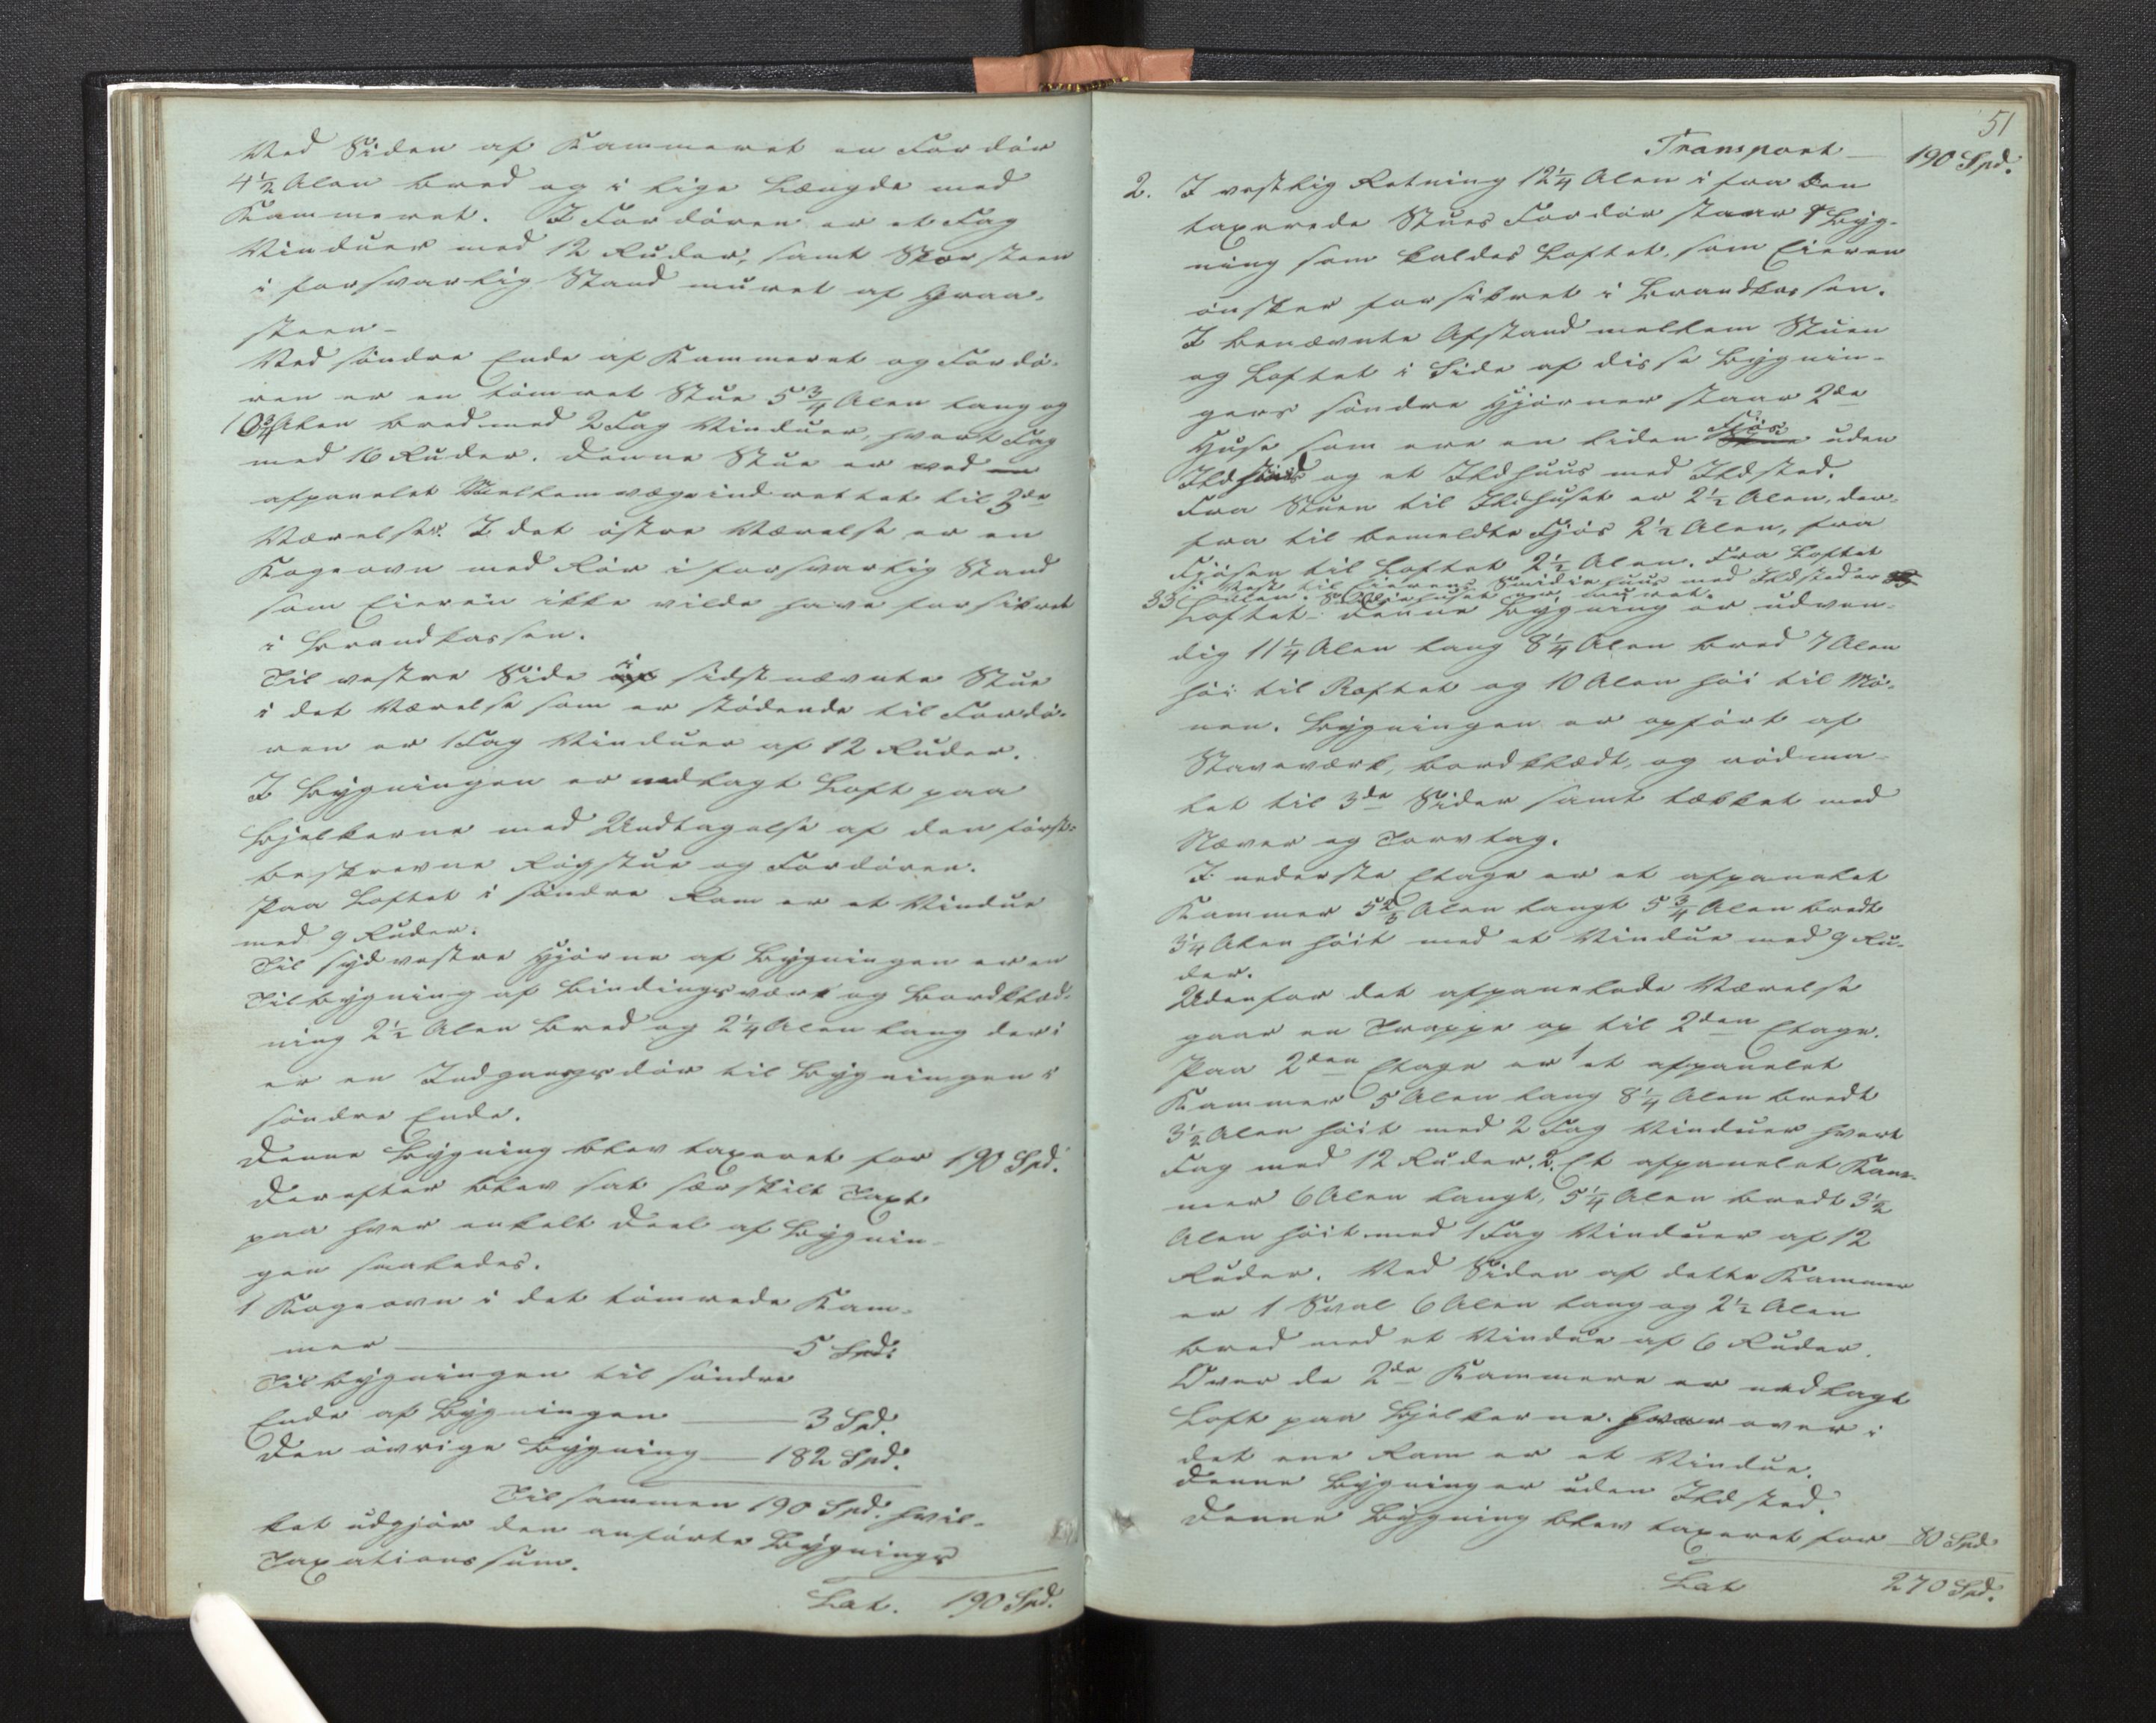 Ved Siden af Kammeret en Fordør
4½ Alen bred og i lige Længde med
Kammeret. I Fordøren er et Fag
Vinduer med 12 Ruder, samt Skorsteen
i forsvarlig Stand muret af Graa-
steen –
Ved søndre Ende af Kammeret og Fordø-
ren er en tømret Stue 5¾ Alen lang og
Alen bred med 2 Fag Vinduer, hvert Fag
med 16 Ruder. Denne Stue er ved
afpanelet Mellemvæg indrettet til
Værelser. I det østre Værelse er en
Kogeovn med Rør i forsvarlig Stand
som Eieren ikke vilde have forsikret
i Brandkassen.
Til vestre Side i sidstnævnte Stue
i det Værelse som er stødende til Fordø-
ren er 1 Fag Vinduer af 12 Ruder.
I Bygningen er nedlagt Loft paa
Bjelkerne med Undtagelse af den først-
beskrevne Røgstue og Fordøren.
Paa Loftet i søndre Rom er et Vindue
med 9 Ruder.
Til sydvestre Hjørne af Bygningen er en
Tilbygning af Bindingsværk og Bordklæd-
ning 2½ Alen bred og 2¼ Alen lang deri
er en Indgangsdør til Bygningen i
søndre Ende.
Denne Bygning blev taxeret for 190 Spd.
Derefter blev sat særskilt Taxt
paa hver enkelt Deel af Bygnin-
gen saaledes.
1 Kogeovn i det tømrede Kam-
mer — 5 Spd.
Tilbygningen til søndre
Ende af Bygningen — 3 Spd.
Den øvrige Bygning — 182 Spd.
Tilsammen 190 Spd. hvil-
ket udgjør den anførte Bygnings
Taxationssum.
Lat. 190 Spd.
51
Transport — 190 Spd.
2. I vestlig Retning 12¼ Alen i fra den
taxerede Stues Fordør staar 1 Byg-
ning som kaldes Loftet, som Eieren
ønsker forsikret i Brandkassen.
I benævnte Afstand mellem Stuen
og Loftet i Side af disse Bygnin-
gers søndre Hjørner staar 2de
Huse som ere en liden Fjøs uden
Ildsted og et Ildhuus med Ildsted.
Fra Stuen til Ildhuset er 2½ Alen, der-
fra til bemeldte Fjøs 2½ Alen, fra
Fjøsen til Loftet 2½ Alen. Fra Loftet
i Vest til Eierens Smidiehuus med Ildsted er
33 Alen. Smidiehuset er muret.
Loftet. Denne Bygning er udven-
dig 11¼ Alen lang 8¼ Alen bred 7 Alen
høi til Raftet og 10 Alen høi til Mø-
nen. Bygningen er opført af
Staveværk, bordklædt, og rødma-
let til 3de Sider samt tækket med
Næver og Torvtag.
I nederste Etage er et afpanelet
Kammer Alen langt 5¾ Alen bredt
3¼ Alen høit med et Vindue med 9 Ru-
der.
Udenfor det afpanelede Værelse
gaar en Trappe op til 2den Etage.
Paa 2den Etage er 1 et afpanelet
Kammer 5 Alen lang 8¼ Alen bredt
3½ Alen høit med 2 Fag Vinduer hvert
Fag med 12 Ruder. 2. Et afpanelet Kam-
mer 6 Alen langt, 5¼ Alen bredt 3½
Alen høit med 1 Fag Vinduer af 12
Ruder. Ved Siden af dette Kammer
er 1 Sval 6 Alen lang og 2½ Alen
bred med et Vindue af 6 Ruder.
Over de 2de Kammere er nedlagt
Loft paa Bjelkerne. hvorover i
det ene Rom er et Vindue.
Denne Bygning er uden Ildsted.
Denne Bygning blev taxeret for — 80 Spd
Lat 270 Spd.